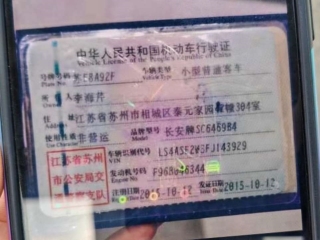 中华人民共和国机动车行驶证
Vehicle License of the People's Republic of China
号牌号码 E8A92F 车辆类型 小型普通客车
Plate No. Vehicle Type
所 人 李海芹
住 址 江苏省苏州市相城区泰元家园 幢304室
使用性质 非营运 品牌型号 长安牌SC6469B4
Use Character Model
江苏省苏州 车辆识别代号 LS4ASE2W5FJ143929
市公安局交 VIN
发动机号码 F96B046344
支队 Engine No.
注册日期 2015-10-12 发证日期 2015-10-12
Issue Date